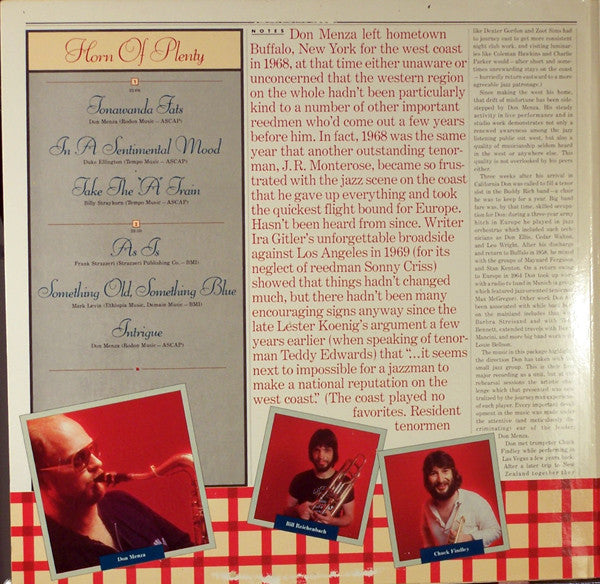 Horn Of Plenty
1
Tonawanda Fats
Don Menza (Rodon Music – ASCAP)
In A Sentimental Mood
Duke Ellington (Tempo Music – ASCAP)
Take The "A" Train
Billy Strayhorn (Tempo Music – ASCAP)
2
As Is
Frank Strazzeri (Strazzeri Publishing Co. – BMI)
Something Old, Something Blue
Mark Levin (Ethiopia Music, Demain Music – BMI)
Intrigue
Don Menza (Rodon Music – ASCAP)
NOTES Don Menza left hometown
Buffalo, New York for the west coast
in 1968, at that time either unaware or
unconcerned that the western region
on the whole hadn't been particularly
kind to a number of other important
reedmen who'd come out a few years
before him. In fact, 1968 was the same
year that another outstanding tenor-
man, J.R. Monterose, became so frus-
trated with the jazz scene on the coast
that he gave up everything and took
the quickest flight bound for Europe.
Hasn't been heard from since. Writer
Ira Gitler's unforgettable broadside
against Los Angeles in 1969 (for its
neglect of reedman Sonny Criss)
showed that things hadn't changed
much, but there hadn't been many
encouraging signs anyway since the
late Lester Koenig's argument a few
years earlier (when speaking of tenor-
man Teddy Edwards) that "...it seems
next to impossible for a jazzman to
make a national reputation on the
west coast." (The coast played no
favorites. Resident
tenormen
like Dexter Gordon and Zoot Sims had
to journey east to get more consistent
night club work, and visiting luminar-
ies like Coleman Hawkins and Charlie
Parker would – after short and some-
times unrewarding stays on the coast
– hurriedly return eastward to a more
agreeable jazz patronage.)
Since making the west his home,
that drift of misfortune has been side-
stepped by Don Menza. His steady
activity in live performance and in
studio work demonstrates not only a
renewed awareness among the jazz
listening public out west, but also a
quality of musicianship seldom heard
in the west or anywhere else. This
quality is not overlooked by his peers
either.
Three weeks after his arrival in
California Don was called to fill a tenor
slot in the Buddy Rich band – a chair
he was to keep for a year. Big band
fare was, by that time, skilled occupa-
tion for Don: during a three-year army
hitch in Europe he played in jazz
orchestras which included such tech-
nicians as Don Ellis, Cedar Walton,
and Leo Wright. After his discharge
and return to Buffalo in 1958, he played
with the groups of Maynard Ferguson
and Stan Kenton. On a return swing
to Europe in 1964 Don took up work
with a radio big band in Munich in
which featured jazz-oriented tenorman
Max McGregor. Other work Don has
been associated with while
on the mainland includes
Barbra Streisand and with
Bennett, extended travels with
Mancini, and more big band work with
Louie Bellson.
The music in this package highlights
the direction Don has taken with
small jazz group. This is their first
major recording as a unit, but
rehearsal sessions the artistic
lenge which that presented was
tralized by the journey man experience
of each player. Every important devel-
opment in the music was made under
the attentive (and meticulously dis-
criminating) ear of the leader,
Don Menza.
Don met trumpeter Chuck
Findley while performing in
Las Vegas a few years back.
After a later trip to New
Zealand together they
Don Menza
Bill Reichenbach
Chuck Findley